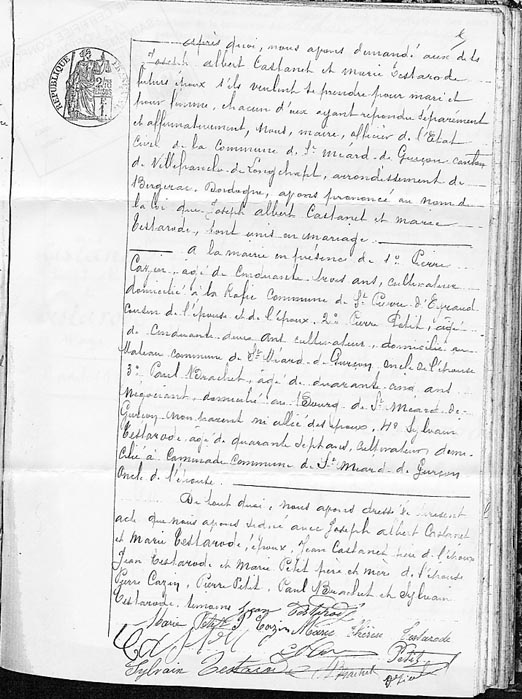 après quoi, nous avons demandé aux dits
Joseph albert Castanet et marie Testarode
futurs époux s'ils veulent se prendre pour mari et
pour femme, chacun d'eux ayant répondu séparément
et affirmativement, Nous, maire, officier de l'Etat
Civil de la Commune de St Méard-de Gurçon canton
de Villefranche-de Longchapt, arrondissement de
Bergerac, Dordogne, avons prononcé au nom de
la loi que Joseph albert Castanet et marie
Testarode, sont unis en mariage.
A la mairie en présence de 1o Pierre
Cazen, agé de Cinquante trois ans, cultivateur
domicilié à la Rafie Commune de St Pierre d'Eyraud
Cousin de l'épouse et de l'époux. 2o Pierre Petit, agé
de Cinquante deux ans cultivateur, domicilié au
Commune de St Méard-de Gurçon, oncle de l'épouse
3o Paul Brachet, age de quarante cinq ans
Négociant, domicilié au Bourg de St Méard-de-
Gurçon non parent ni allié des époux. 4o Sylvain
Testarode, agé de quarante sept ans, cultivateur domi-
cilié à Commune de St Méard-de Gurçon
oncle de l'épouse.
De tout quoi, nous avons dressé le présent
acte que nous avons signé avec Joseph albert Castanet
et Marie Testarode, époux, Jean Castanet père de l'époux
Jean Testarode et Marie Petit père et mère de l'épouse
Pierre Cazen, Pierre Petit, Paul Brachet et Sylvain
Testarode, témoins. Jean Testarode
Marie Petit P Cazen Marie Testarode
Petit
Sylvain Testarode Brachet
REPUBLIQUE FRANÇAISE